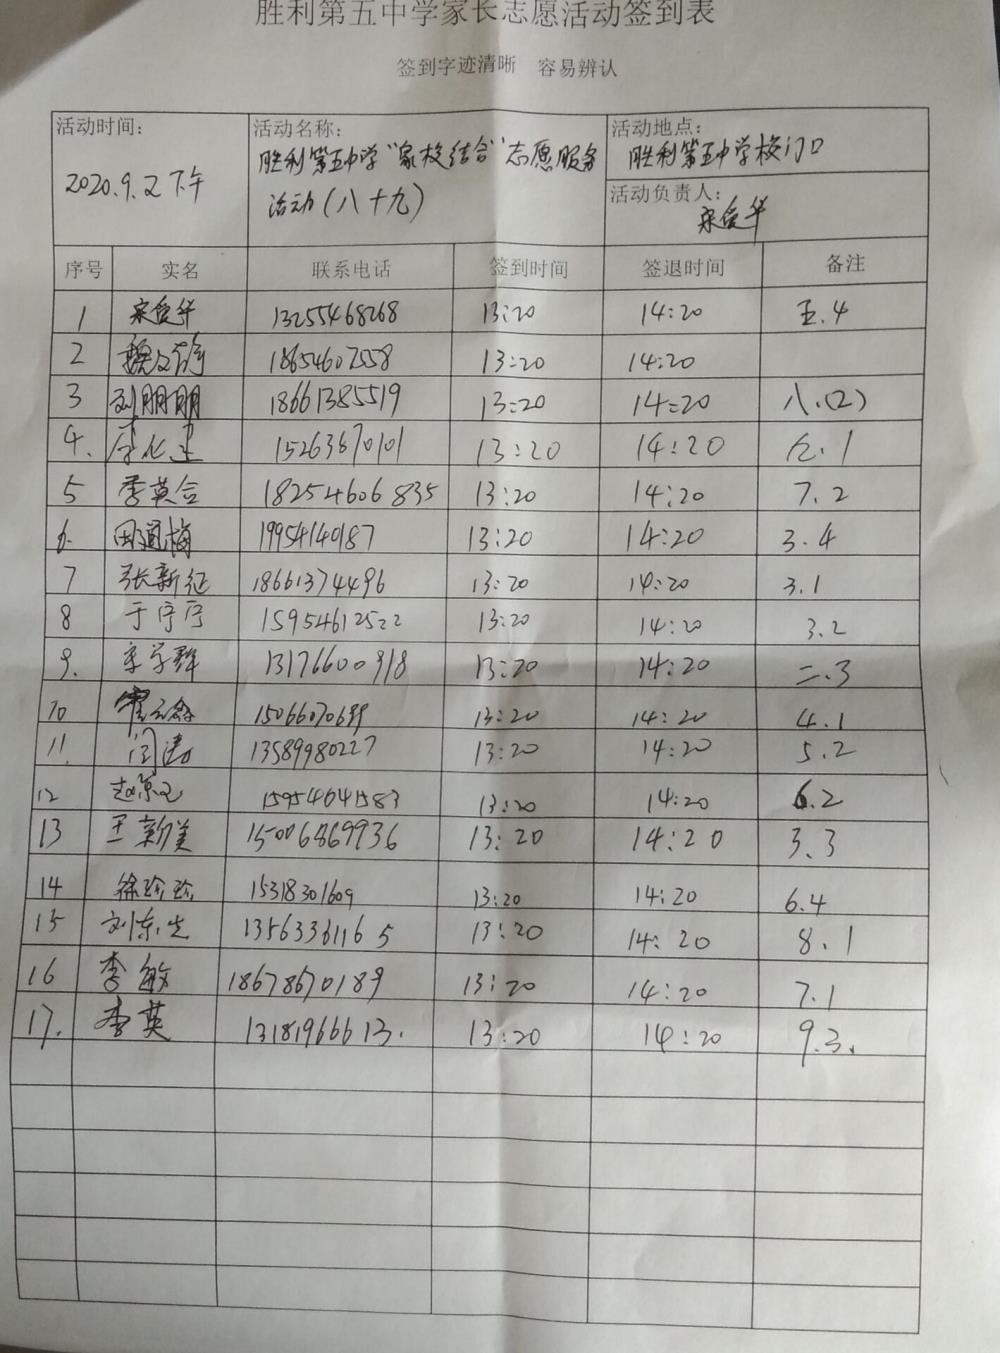 胜利第五中学家长志愿活动签到表
签到字迹清晰 容易辨认
活动时间: 2020.9.2下午
活动名称: 胜利第五中学“家校结合”志愿服务
活动(八十九)
活动地点: 胜利第五中学校门口
活动负责人: 宋俊华
序号 实名 联系电话 签到时间 签退时间 备注
1 宋俊华 13255468268 13:20 14:20 五.4
2 18654602558 13:20 14:20
3 刘朋朋 18661385519 13:20 14:20 八.(2)
4. 15263670101 13:20 14:20 .1
5 季英合 18254606835 13:20 14:20 7.2
6. 田通梅 19954140187 13:20 14:20 3.4
7 张新征 18661374496 13:20 14:20 3.1
8 于序序 15954612522 13:20 14:20 3.2
9. 李学群 13176600918 13:20 14:20 二.3
10 15066070699 13:20 14:20 4.1
11. 闫涛 13589980227 13:20 14:20 5.2
12 15954641583 13:20 14:20 6.2
13 王新美 15006869936 13:20 14:20 3.3
14 徐珍珍 15318301609 13:20 14:20 6.4
15 刘东先 13563361165 13:20 14:20 8.1
16 李敏 18678670189 13:20 14:20 7.1
17. 李英 13181966613. 13:20 14:20 9.3.